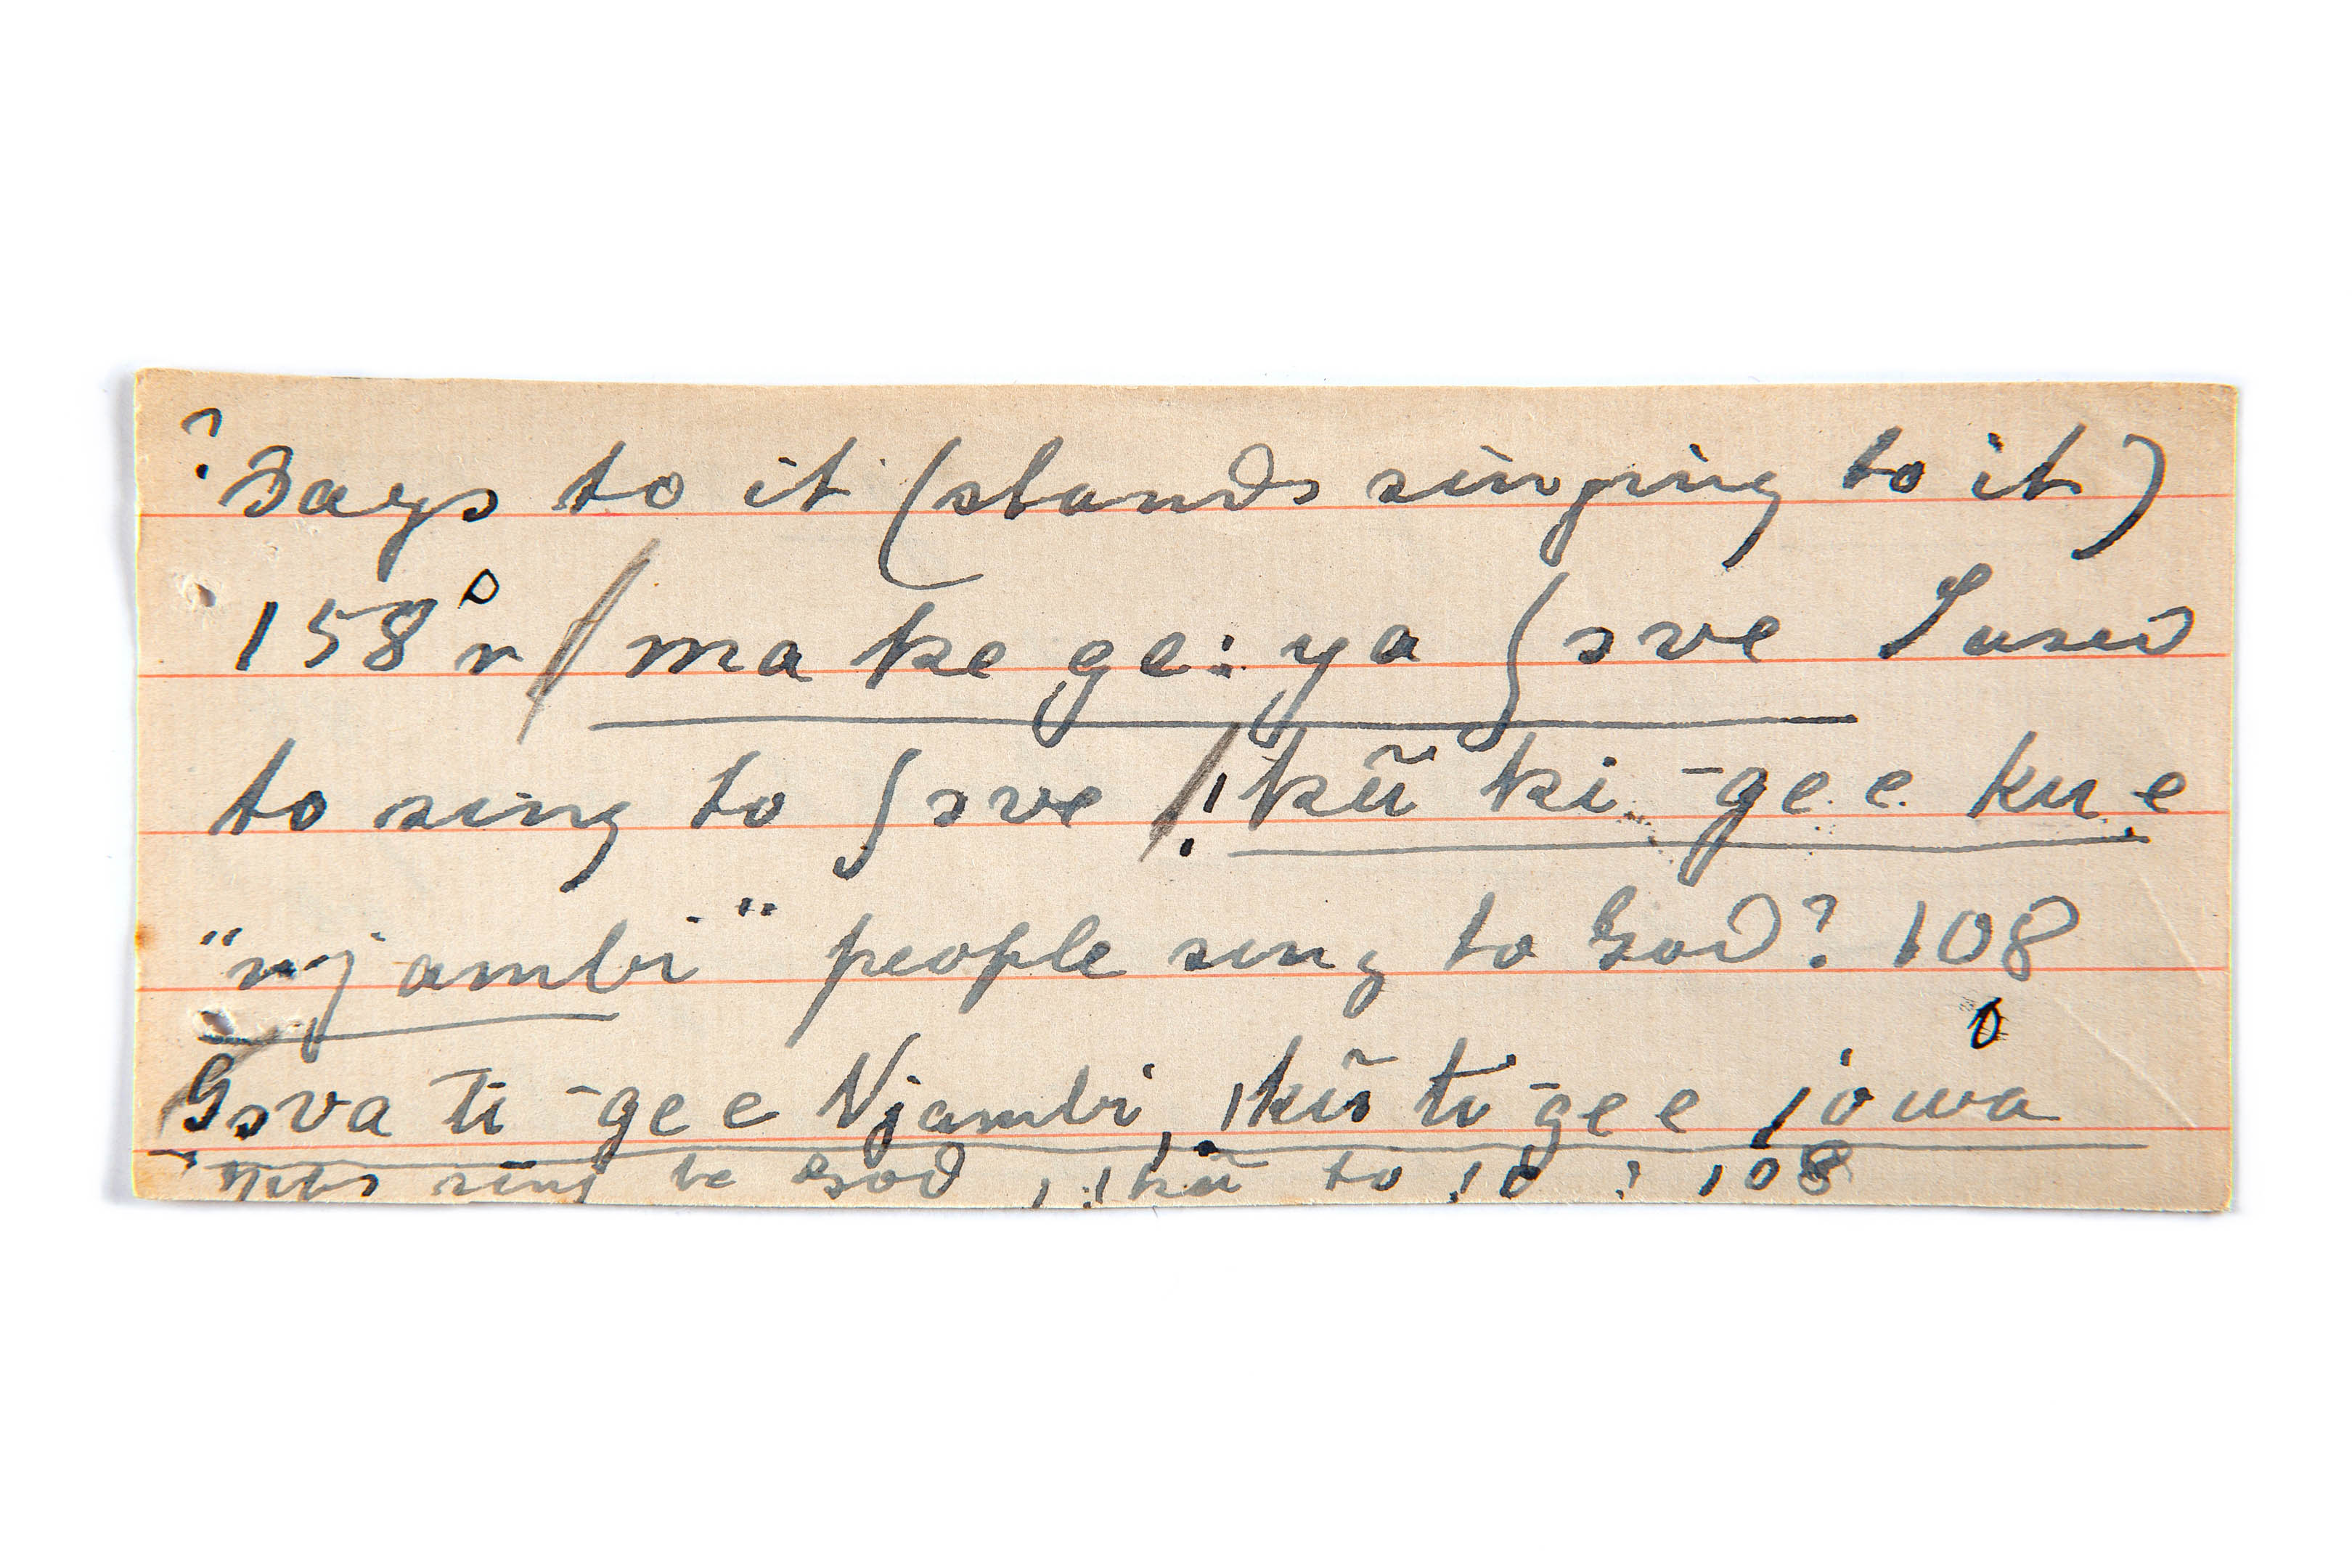 ? Says to it (stands singing to it)
158 r / ma ke ge: ya ʃɔve I used
to sing to ʃɔve / !kũ ki -gee kue
"njambi" people sing to God? 108
Gɔva ti -gee Njambi, !kũ ti -gee !o wa
sing to God, !kũ to !o ? 108